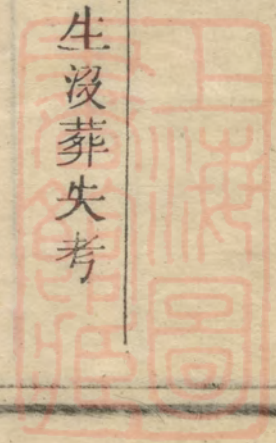 生没葬失考
上海圖
書館藏